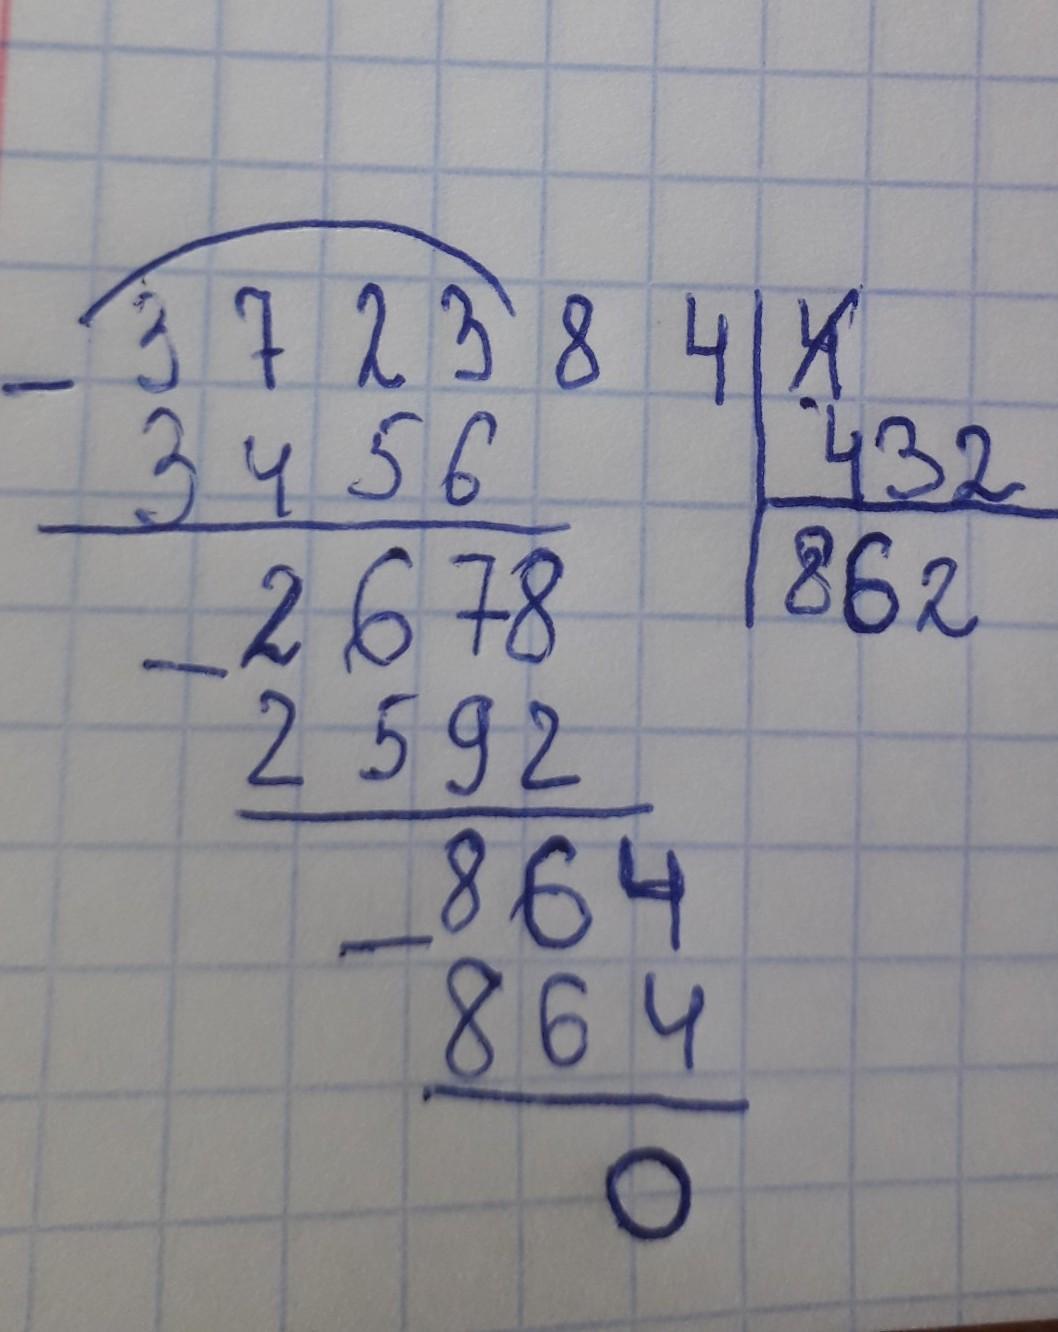 372384
432
- 3456
862
2678
- 2592
864
- 864
0